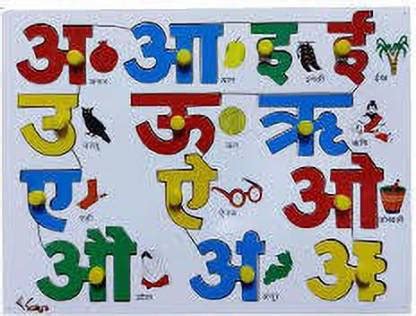 अ अनार आ आम इ इमली ई ईख
उ उल्लू ऊ ऊन ऋ ऋषि
ए एड़ी ऐ ऐनक ओ ओखली
औ औरत अं अंगूर अः